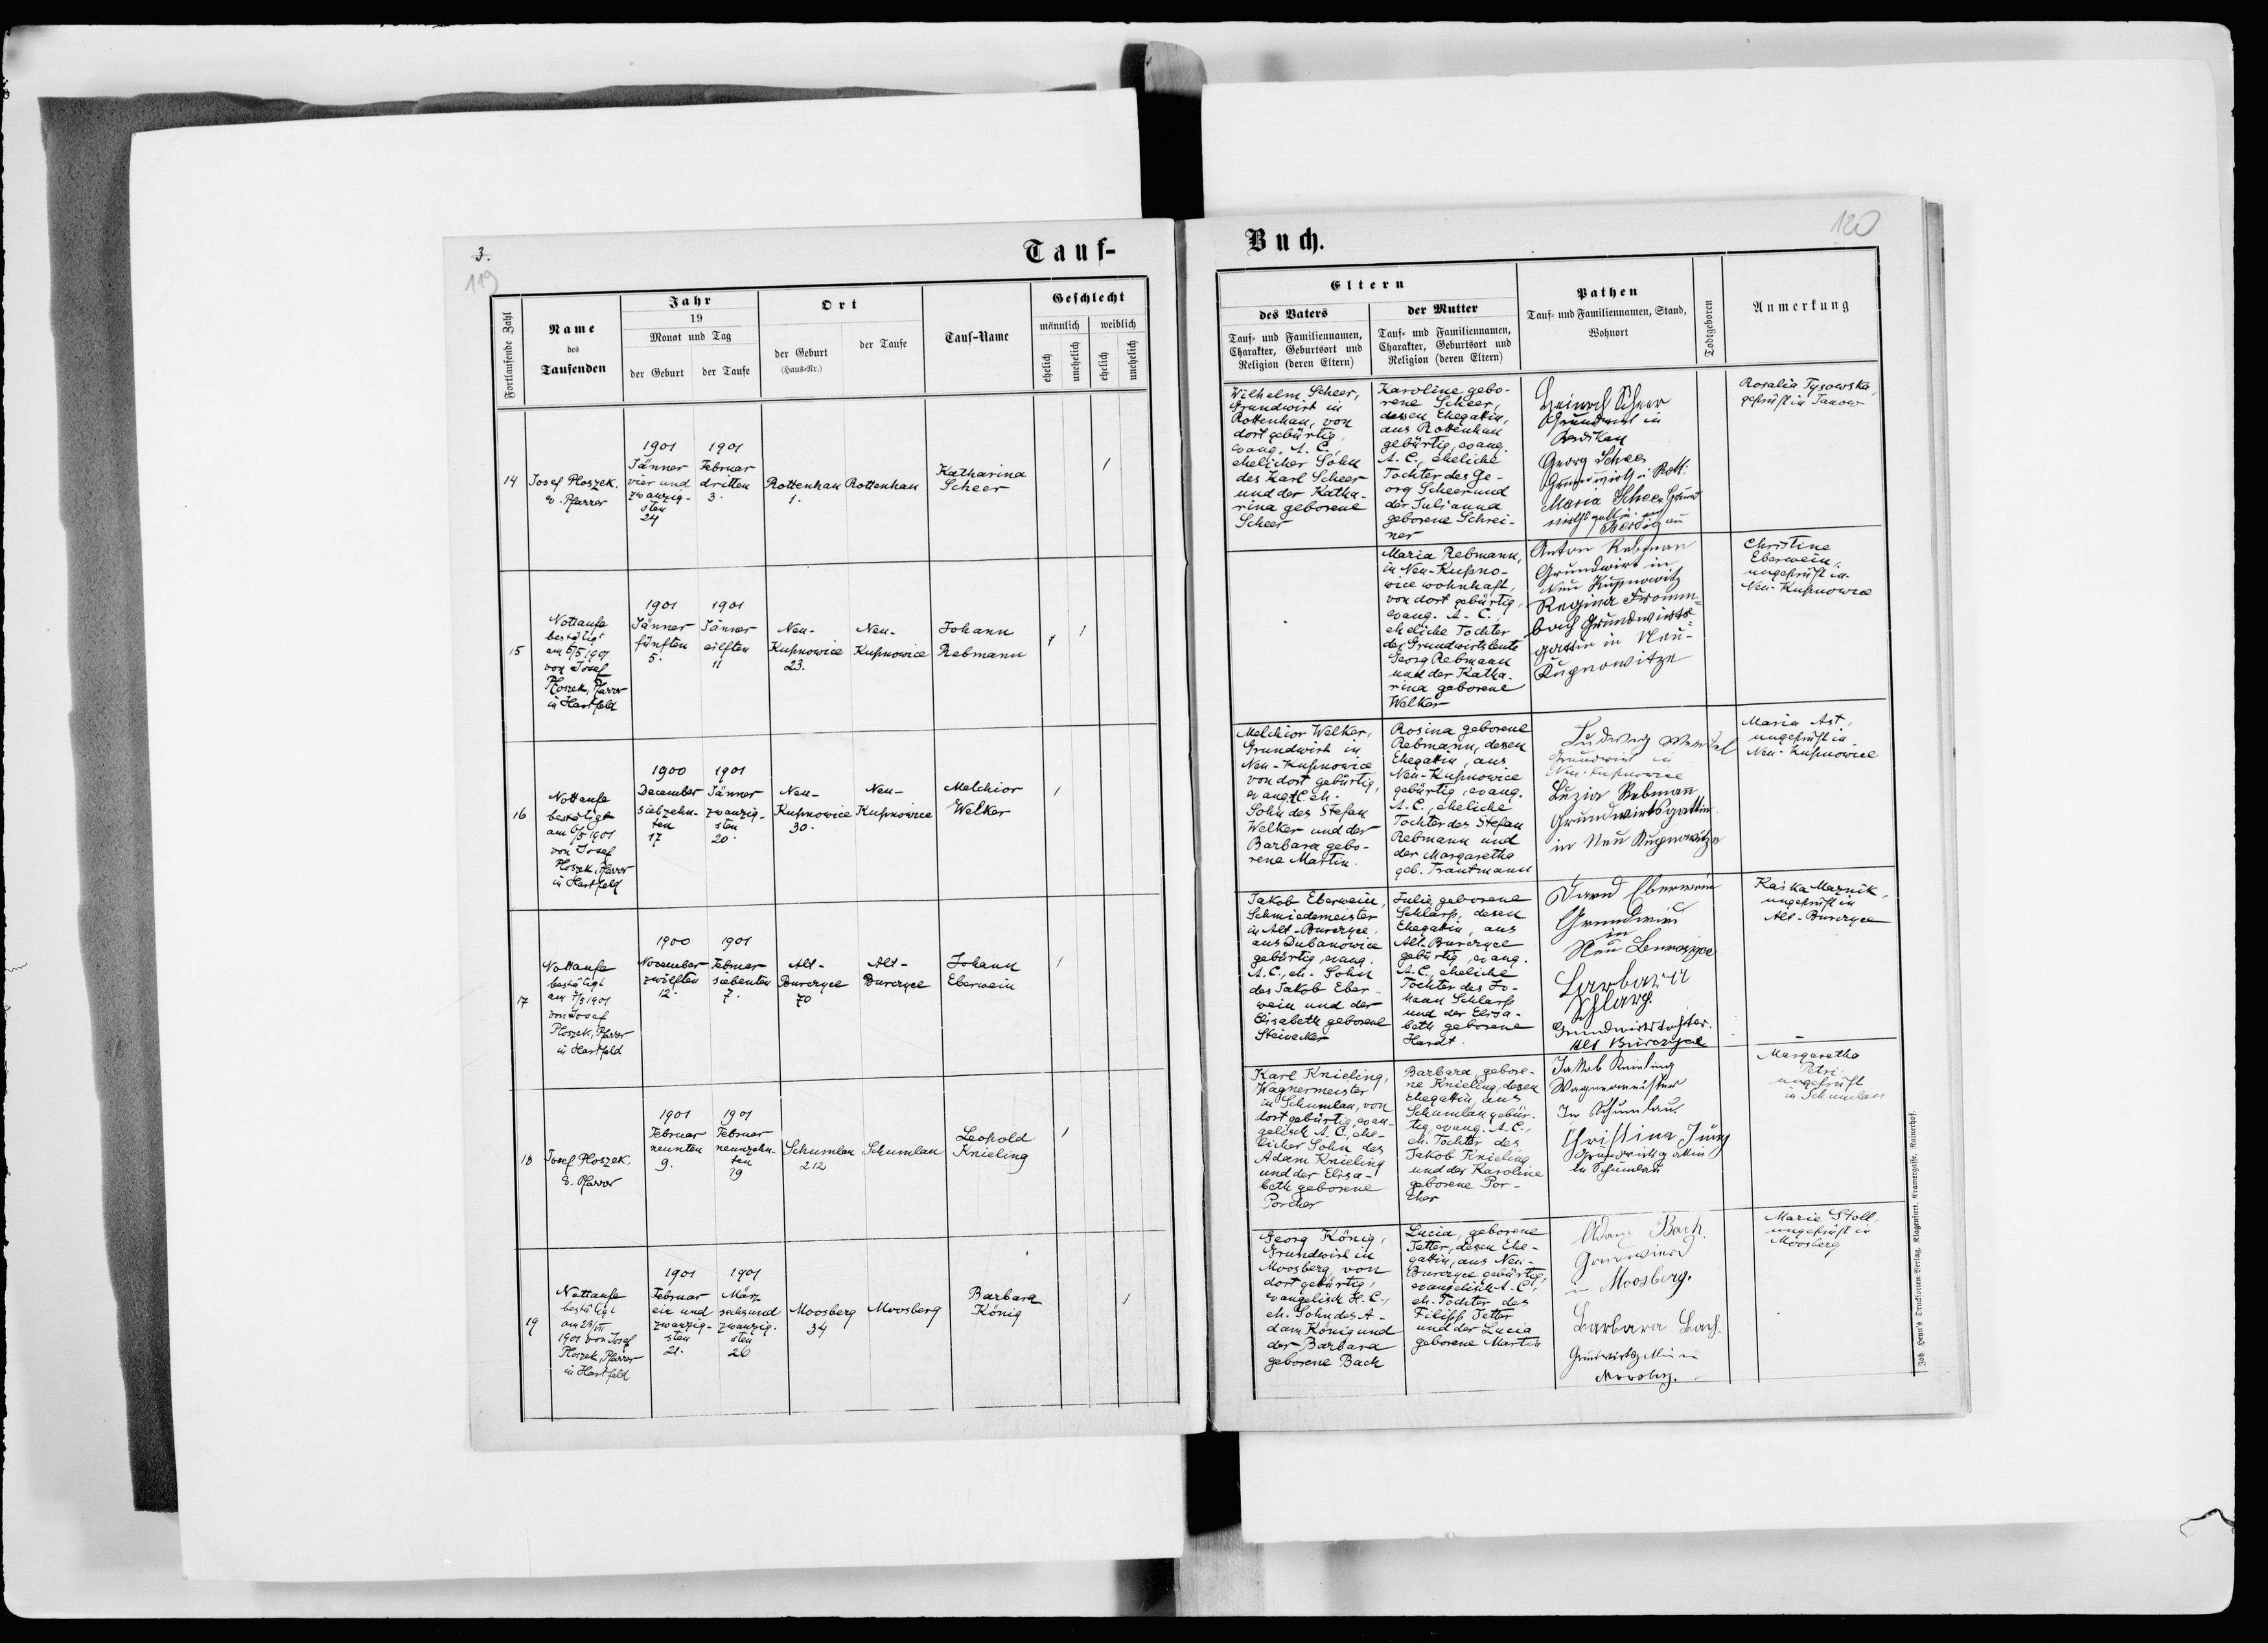 3.
119
Tauf-
Fortlaufende Zahl
Name
des
Taufenden
Jahr
19
Monat und Tag
der Geburt
der Taufe
Ort
der Geburt
(Haus-Nr.)
der Taufe
Tauf-Name
Geschlecht
männlich
weiblich
ehelich
unehelich
ehelich
unehelich
14
Josef Ploszek,
e. Pfarrer
1901
Jänner
vier und
zwanzig-
sten
24
1901
Februar
dritten
3.
Rottenhan
1.
Rottenhan
Katharina
Scheer
1
15
Nottaufe
bestätigt
am 6/5 1901
von Josef
Ploszek, Pfarrer
in Hartfeld
1901
Jänner
fünften
5.
1901
Jänner
eilften
11
Neu-
Kupnowice
23.
Neu-
Kupnowice
Johann
Rebmann
1
1
16
Nottaufe
bestätigt
am 6/5 1901
von Josef
Ploszek, Pfarrer
in Hartfeld
1900
December
siebzehn-
ten
17
1901
Jänner
zwanzig-
sten
20.
Neu-
Kupnowice
30.
Neu-
Kupnowice
Melchior
Welker
1
17
Nottaufe
bestätigt
am 7/3 1901
von Josef
Ploszek, Pfarrer
in Hartfeld
1900
November
zwölften
12.
1901
Februar
siebenten
7.
Alt-
Burczyce
70
Alt-
Burczyce
Johann
Eberwein
1
18
Josef Ploszek,
e. Pfarrer
1901
Februar
neunten
9.
1901
Februar
neunzehn-
ten
19
Schumlau
212
Schumlau
Leopold
Knieling
1
19
Nottaufe
bestätigt
am 23/VII
1901 von Josef
Ploszek, Pfarrer
in Hartfeld
1901
Februar
ein und
zwanzig-
sten
21.
1901
März
sechsund
zwanzig-
sten
26
Moosberg
34
Moosberg
Barbara
König
1
Buch.
120
Eltern
des Vaters
Tauf- und Familiennamen,
Charakter, Geburtsort und
Religion (deren Eltern)
der Mutter
Tauf- und Familiennamen,
Charakter, Geburtsort und
Religion (deren Eltern)
Pathen
Tauf- und Familiennamen, Stand,
Wohnort
Todtgeboren
Anmerkung
Wilhelm Scheer,
Grundwirt in
Rottenhan, von
dort gebürtig,
evang. A. C.,
ehelicher Sohn
des Karl Scheer
und der Katha-
rina geborene
Scheer
Karoline gebo-
rene Scheer,
dessen Ehegattin,
aus Rottenhan
gebürtig, evang.
A. C., eheliche
Tochter des Ge-
org Scheer und
der Julianna
geborene Schrei-
ner
Heinrich Scheer
Grundwirt in
Georg Scheer
Maria Scheer
Rosalia Tysowska,
geprüft in Janow
Maria Rebmann,
in Neu-Kupno-
wice wohnhaft,
von dort gebürtig,
evang. A. C.,
eheliche Tochter
der Grundwirtsleute
Georg Rebmann
und der Katha-
rina geborene
Welker
Anton Rebman
Grundwirt in
Neu Kupnowitz
Regina Fromm-
bach Grundwirts-
gattin in Neu-
Kupnowitze
Christine
Eberwein,
ungeprüft in
Neu-Kupnowice
Melchior Welker,
Grundwirt in
Neu-Kupnowice,
von dort gebürtig,
evang. A. C. eh.
Sohn des Stefan
Welker und der
Barbara gebo-
rene Martin.
Rosina geborene
Rebmann, dessen
Ehegattin, aus
Neu-Kupnowice
gebürtig, evang.
A. C., eheliche
Tochter des Stefan
Rebmann und
der Margaretha
geb. Trautmann
Ludwig
Grundwirt in
Neu-Kupnowice
Luzia Rebman
Grundwirtsgattin
in Neu Kupnowitze
Maria Ast,
ungeprüft in
Neu-Kupnowice
Jakob Eberwein,
Schmiedemeister
in Alt-Burczyce,
aus Dubanowice
gebürtig, evang.
A. C., eh. Sohn
des Jakob Eber-
wein und der
Elisabeth geborene
Steinecker
Julie, geborene
Schlarp, dessen
Ehegattin, aus
Alt-Burczyce
gebürtig, evang.
A. C., eheliche
Tochter des Jo-
hann Schlarp
und der Elisa-
beth geborene
Hardt.
Eberwein
in
Neu
Barbara
Schlarp.
Grundwirtstochter.
Alt Burczyce
Kaśka Maznik,
ungeprüft in
Alt-Burczyce
Karl Knieling,
Wagnermeister
in Schumlau, von
dort gebürtig, evan-
gelisch A. C., ehe-
licher Sohn des
Adam Knieling
und der Elisa-
beth geborene
Porcher
Barbara, gebore-
ne Knieling, dessen
Ehegattin, aus
Schumlau gebür-
tig, evang. A. C.,
eh. Tochter des
Jakob Knieling
und der Karoline
geborene Por-
cher
Jakob Knieling
Wagnermeister
In Schumlau.
Christina Jung
Grundwirtsgattin
in Schumlau
Margaretha
Petri,
ungeprüft
in Schumlau
Georg König,
Grundwirt in
Moosberg, von
dort gebürtig,
evangelisch H. C.,
eh. Sohn des A-
dam König und
der Barbara
geborene Bach
Lucia, geborene
Tetter, dessen Ehe-
gattin, aus Neu-
Burczyce gebürtig,
evangelisch A. C.,
eh. Tochter des
Filipp Tetter
und der Lucia
geborene Martin
Adam Bach.
Grundwird
in Moosberg.
Barbara Bach.
Moosberg.
Marie Stoll,
ungeprüft in
Moosberg
Joh. Heyn's Drucksorten-Verlag, Klagenfurt, Kramergasse, Rainerhof.